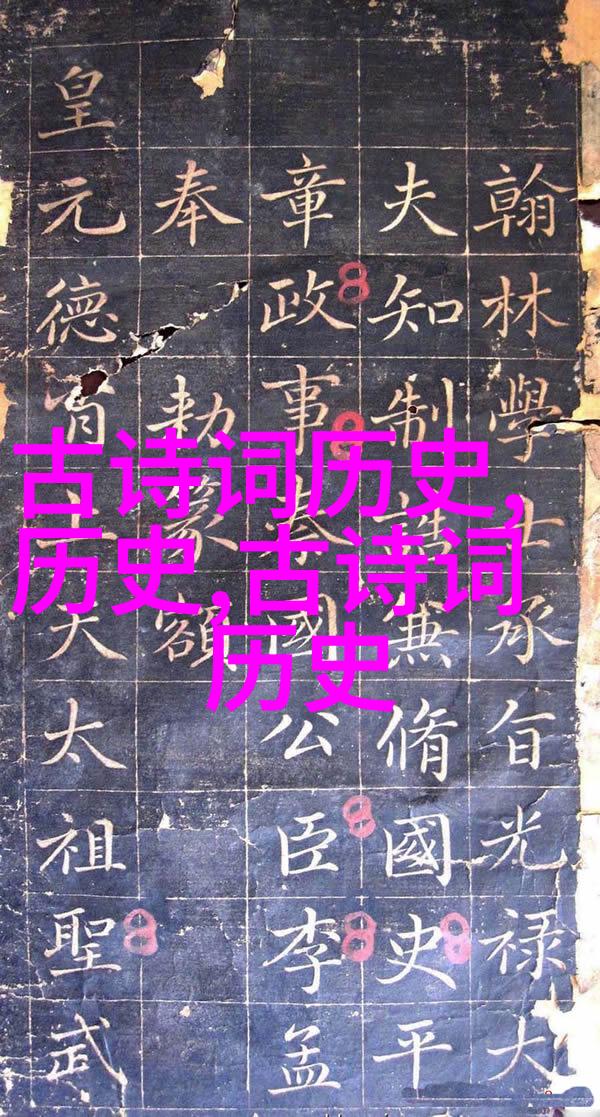 翰林學士承旨光禄大
夫知制誥兼脩國史平
章政事秦國公臣李孟
奉勅篆額
皇元德肖上天太祖聖武
古诗词历史,
历史,古诗词
历史